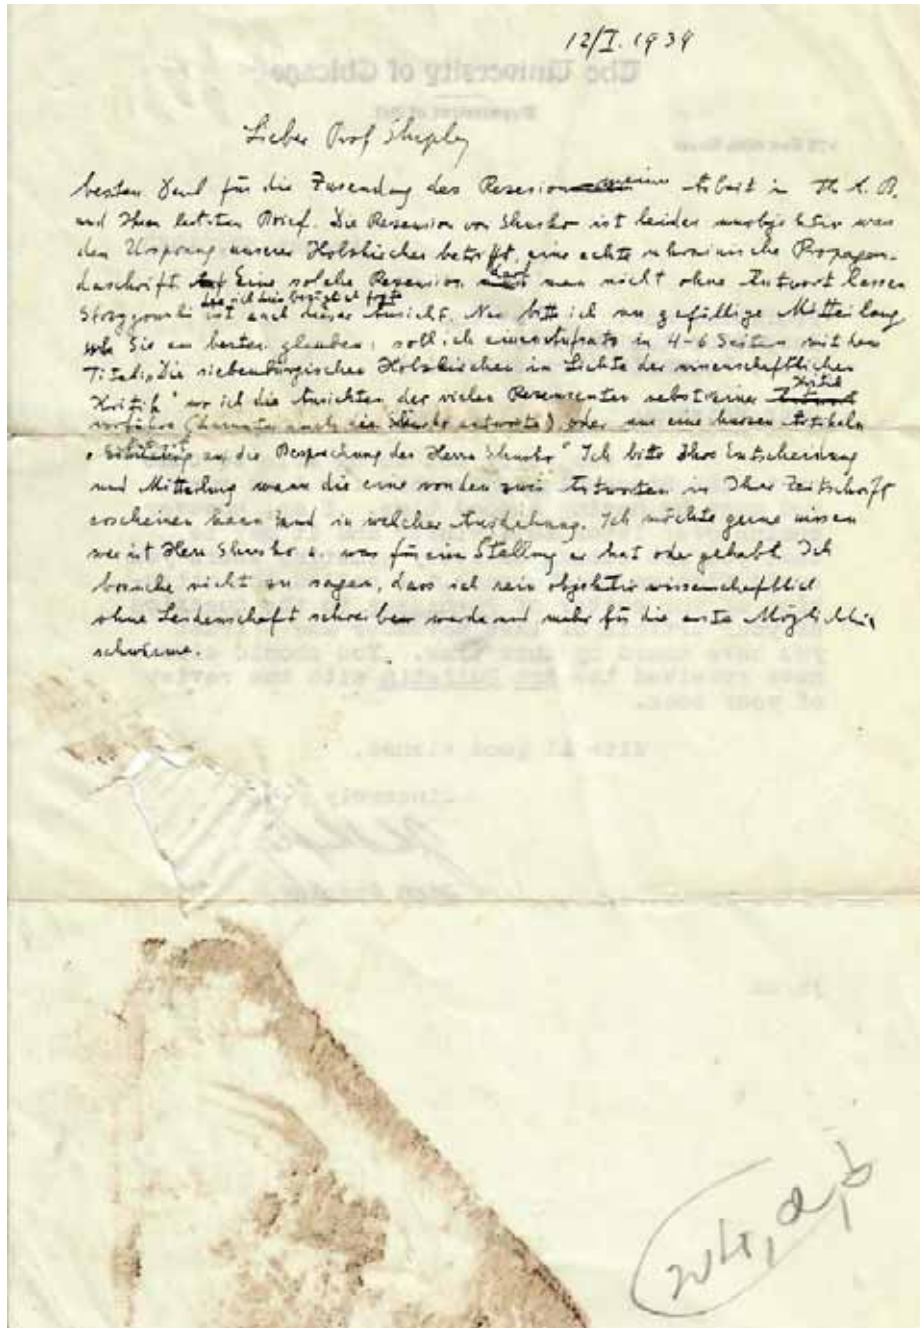 12/I.1939
The University of Chicago
Lieber Prof Shapley
besten Dank für die Zusendung des Resesion meine Arbeit in Th. A. B.
und Ihren letzten Brief. Die Resension von Shusko ist leider unobjektiv was
den Ursprung unserer Holzkirchen betrifft, eine echte ukrainische Propagan-
daschrift. Eine solche Resension darf man nicht ohne Antwort lassen
Strzygowski ist auch dieser Ansicht. Nun bitte ich um gefällige Mitteilung
was Sie am besten glauben, soll ich einen Aufsatz in 4-6 Seiten mit dem
Titel „Die siebenbürgischen Holzkirchen im Lichte der wissenschaftlichen
Kritik" wo ich die Ansichten der vielen Resensenten nebst einer Kritik
vorführe (darunter auch die Shusko antworte) oder nur eine kurzen Artikeln
an die Besprechung des Herrn Shusko" Ich bitte Ihre Entscheidung
und Mitteilung wann die eine von den zwei Antworten in Ihrer Zeitschrift
erscheinen kann und in welcher Ausdehnung. Ich möchte gerne wissen
wer ist Herr Shusko u. was für ein Stellung er hat oder gehabt. Ich
brauche nicht zu sagen, dass ich rein objektiv wissenschaftlich
ohne Leidenschaft schreiben werde und mehr für die erste Möglichkeit
schwärme.
you have heard by this time. You should also
have received the Art Bulletin with the review
of your book.
With all good wishes,
Sincerely
204, a, b